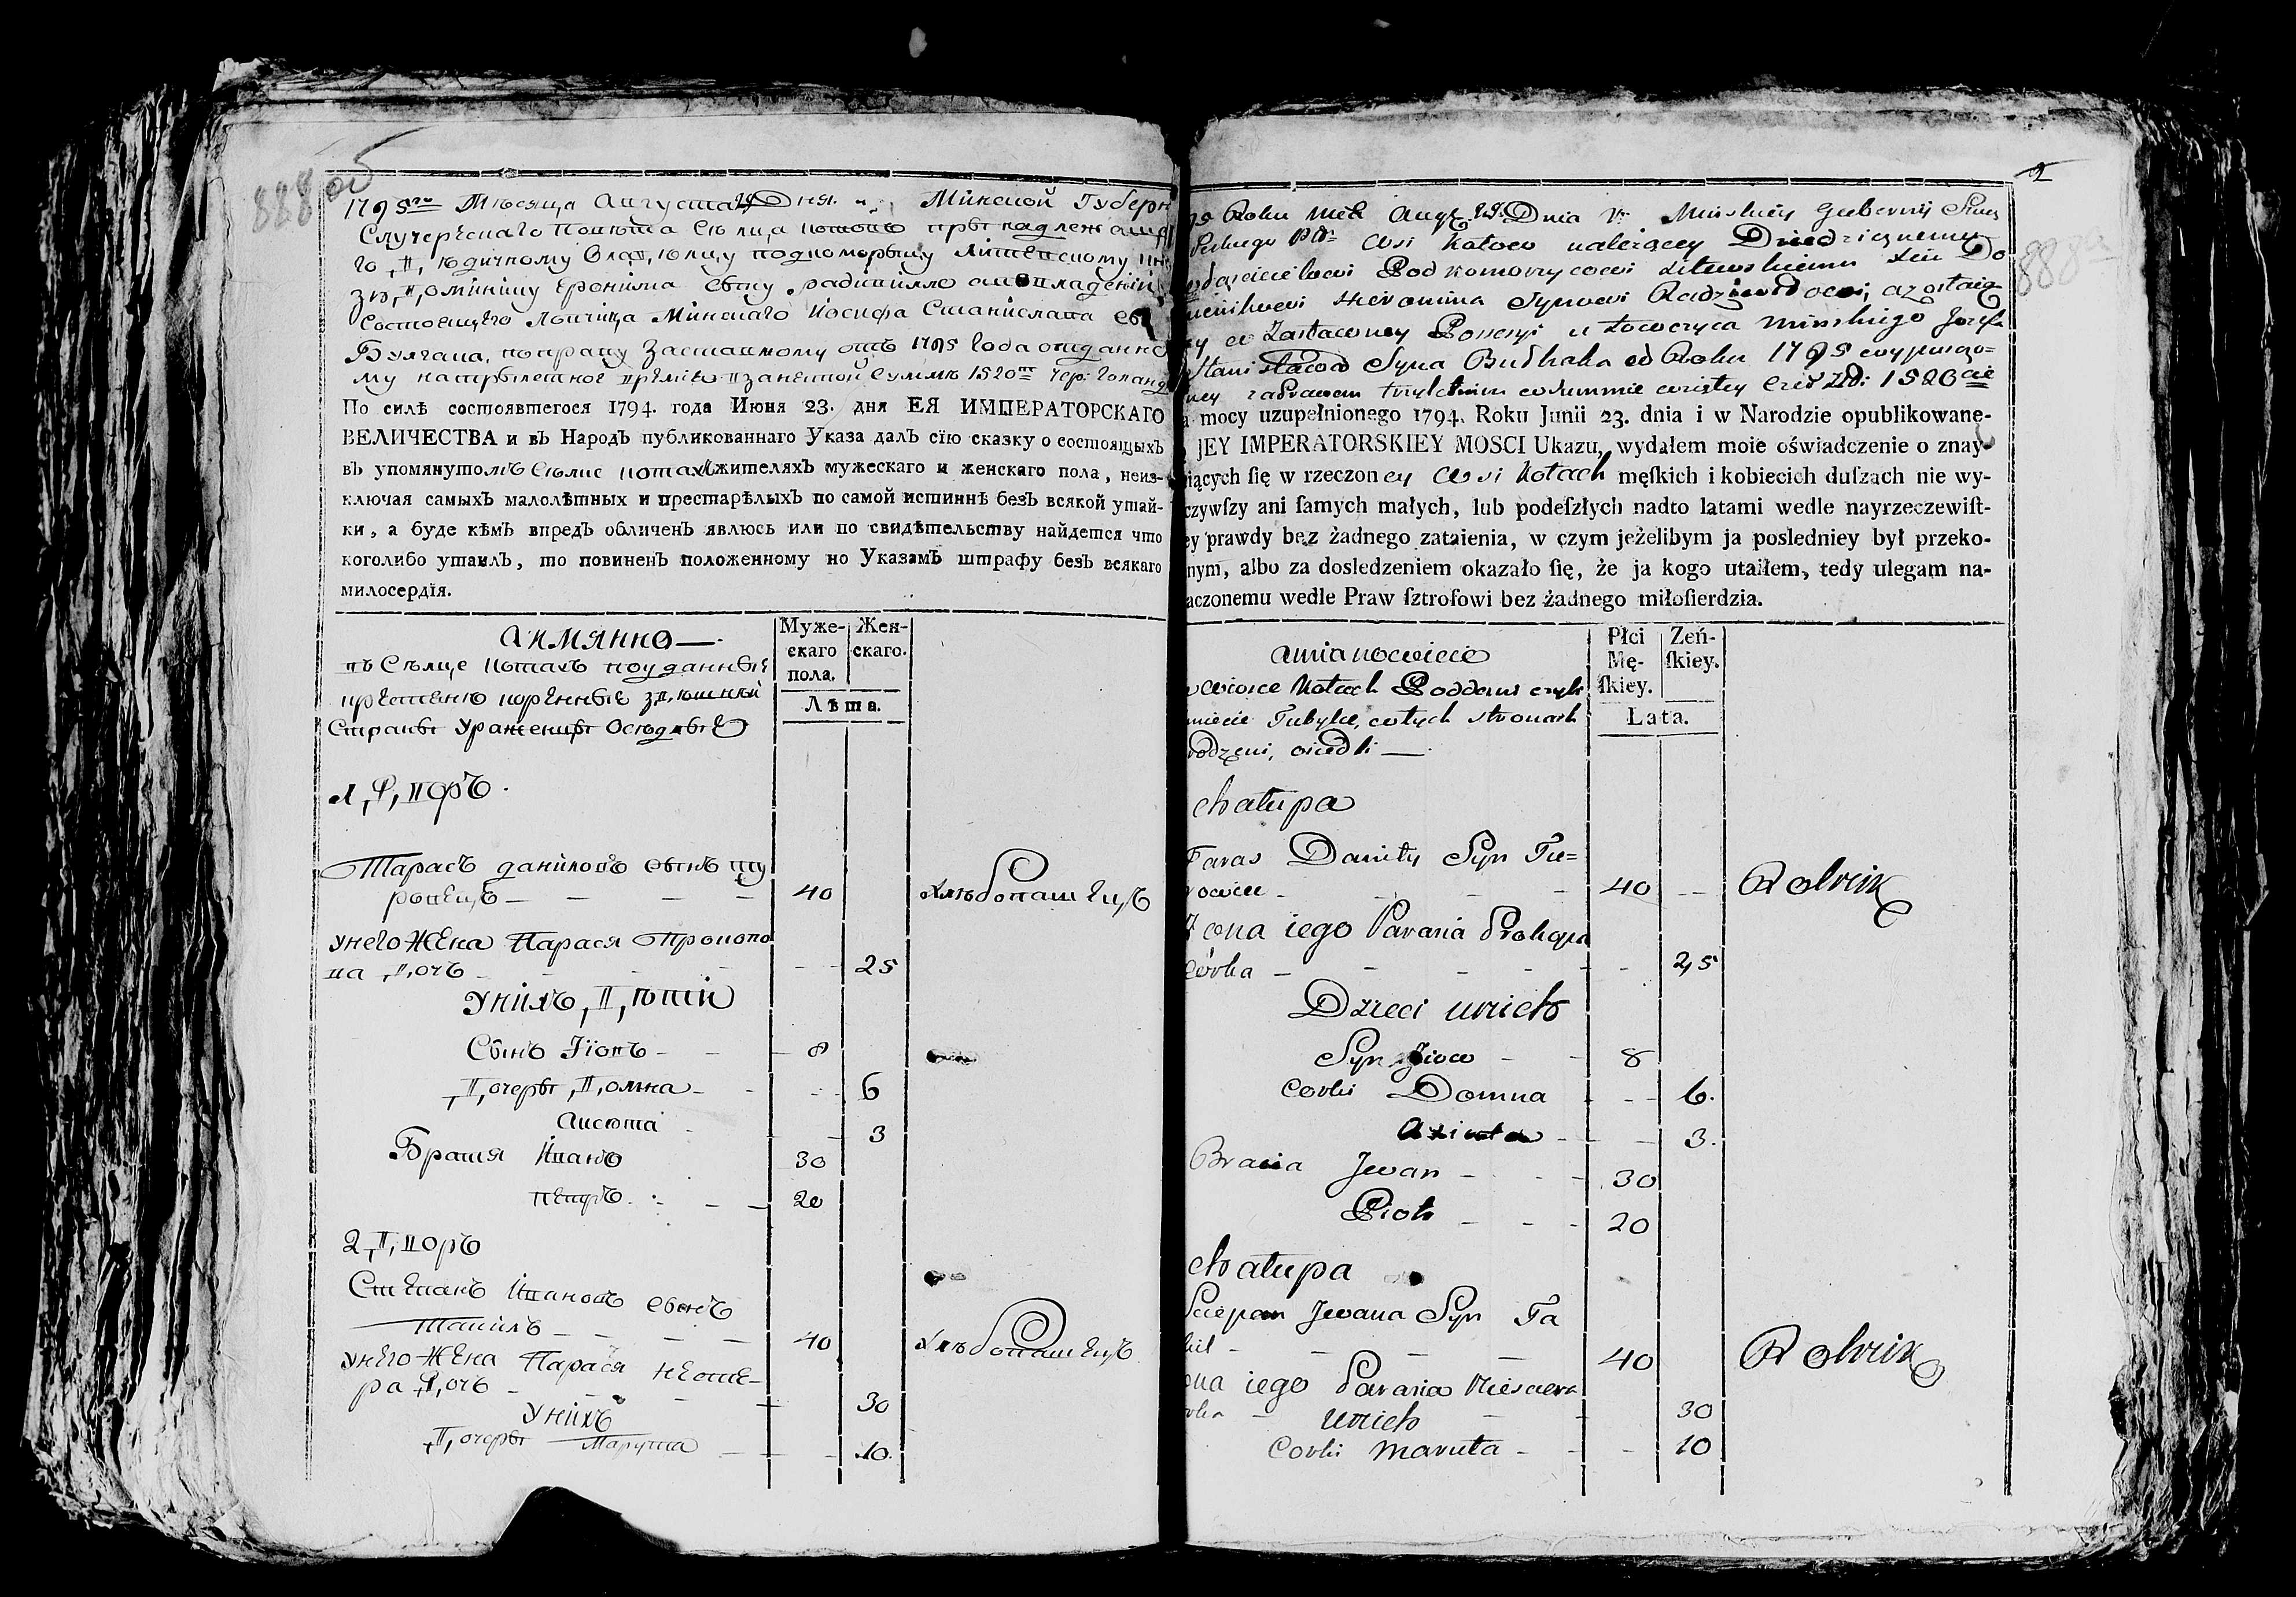 888 об
1795го Мѣсяца Августа 29 Дня. Минской Губерн
Случерескаго Повѣта Сѣлца Котовъ принадлежаща
го дѣдичному владѣлцу подкоморыцу Литевскому
Доминику Еронима сыну радивиллу
состоящего Ловчица Минскаго Иосифа Станислава
Булгака, по праву Заставному отъ 1795 Года отданно
му на трылетное времѣ в занятой суммѣ 1520 чер: Голанд
По силѣ состоявшегося 1794. года Июня 23. дня ЕЯ ИМПЕРАТОРСКАГО
ВЕЛИЧЕСТВА и въ Народъ публикованнаго Указа далъ сїю сказку о состоящыхъ
въ упомянутомъ Сѣлце Котахъ жителяхъ мужескаго и женскаго пола, неиз-
ключая самыхъ малолѣтных и престарѣлыхъ по самой истиннѣ безъ всякой утай-
ки, а буде кѣмъ впредъ обличенъ явлюсь или по свидѣтельству найдется что
коголибо утаилъ, то повиненъ положенному но Указамъ штрафу безъ всякаго
милосердїя.
Аимянно
въ Сѣлце Котахъ подданные
крестьянѣ коренные здѣшней
Страны Уроженцы Оседлые
Муже-
скаго
пола.
Жен-
скаго.
Лѣта.
1 дворъ.
Тарасъ даниловъ сынъ ту
ровецъ 40 хлѣбопашецъ
унего Жена Парася Прокопо
ва дочъ 25
Унихъ дѣти
Сынъ Iiовъ 8
дочеры домна 6
Аксюта 3
Братия Иванъ 30
петръ 20
2 дворъ
Степанъ Ивановъ сынъ
Тацилъ 40 Хлѣбопашецъ
унего Жена Парася несте-
ра дочъ 30
Унихъ
дочеры Марута 10.
2
888а
95 Roku Mca Aug 29 Dnia w Minskiey Gubernij Sluc
Peckugo Ptt: wsi Kotow należącey Dziedzicznemu
Podkomorzycowi Litewskiemu Xciu Do
minikowi Hieronima Synowi Radziwiłłowi, a zostaią
cy w Zastawney Possesyi u Łowczyca Minskiego Jozefa
Stanisława Syna Bułhaka od Roku 1795 wypuszczo=
ney zaprawem trzyletnim w summie wziętey Czer Zł: 1520
a mocy uzupełnionego 1794. Roku Junii 23. dnia i w Narodzie opublikowane-
JEY IMPERATORSKIEY MOSCI Ukazu, wydałem moie oświadczenie o znay-
iących ſię w rzeczoney wsi Kotach męſkich i kobiecich duſzach nie wy-
czywſzy ani ſamych małych, lub podeſzłych nadto latami wedle nayrzeczewiſt-
ey prawdy bez żadnego zataienia, w czym jeżelibym ja posledniey był przeko-
nym, albo za dosledzeniem okazało ſię, że ja kogo utaiłem, tedy ulegam na-
aczonemu wedle Praw ſztrofowi bez żadnego miłoſierdzia.
amianowicie
w wiosce Kotach Poddani czyli
Tubylce, w tych stronach
rodzeni, osiedli
Płci
Mę-
ſkiey.
Zeń-
ſkiey.
Lata.
chałupa
Taras Daniły Syn Tu=
rowiec 40 Rolnik
Zona iego Parasia Prokopa
Córka 25
Dzieci unich
Syn Jiow 8
Corki Domna 6.
Axiuta 3.
Bracia Jwan 30
Piotr 20
chałupa
Sciepan Jwana Syn Ta
40 Rolnik
ona iego Parasia Niesciera
rka 30
unich
Corki Maruta 10